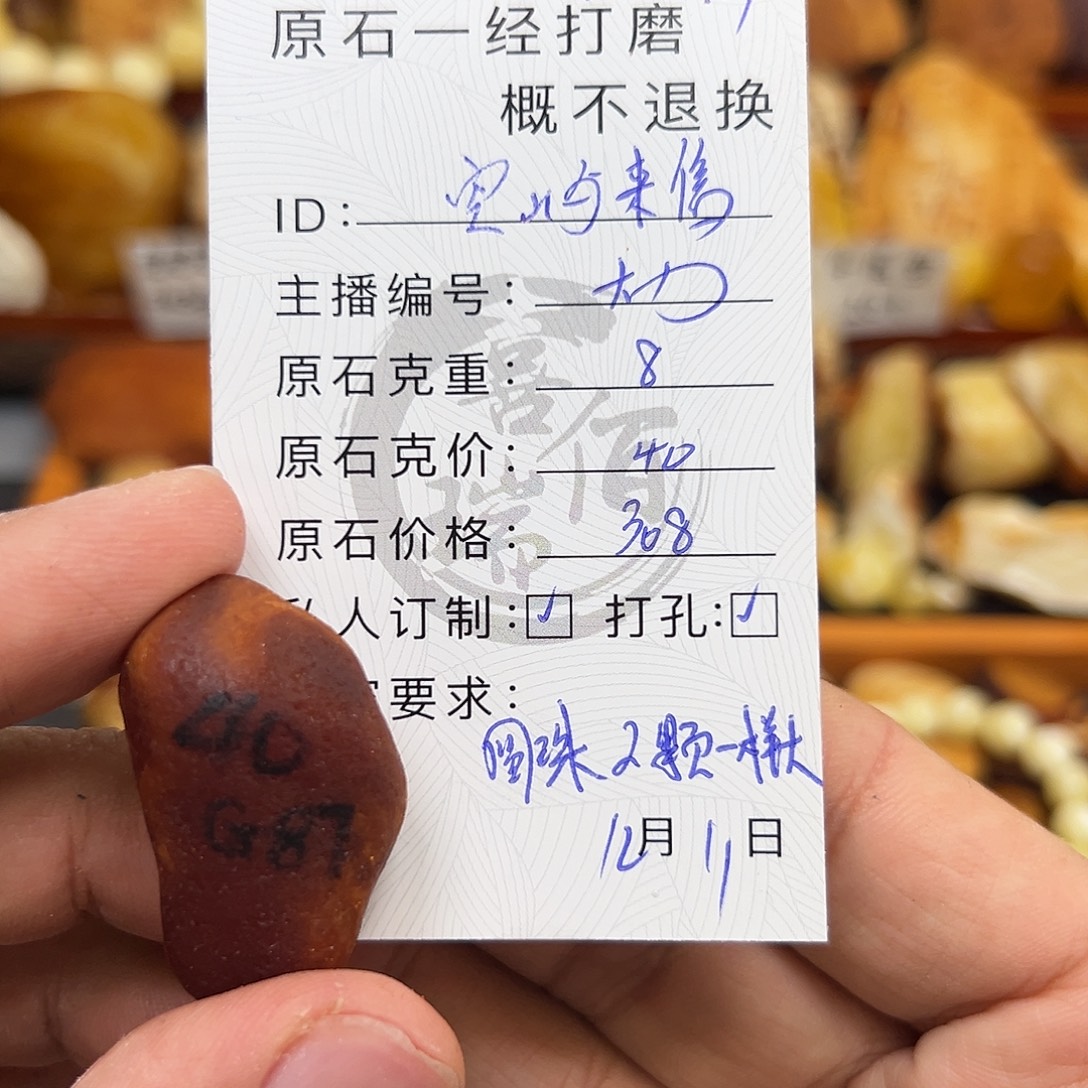 原石一经打磨
概不退换
ID：来信
主播编号：大力
原石克重：8
原石克价：40
原石价格：308
私人订制：✓ 打孔：✓
要求：
圆珠2颗一样大
12月11日
喜佰瑞
40
G87